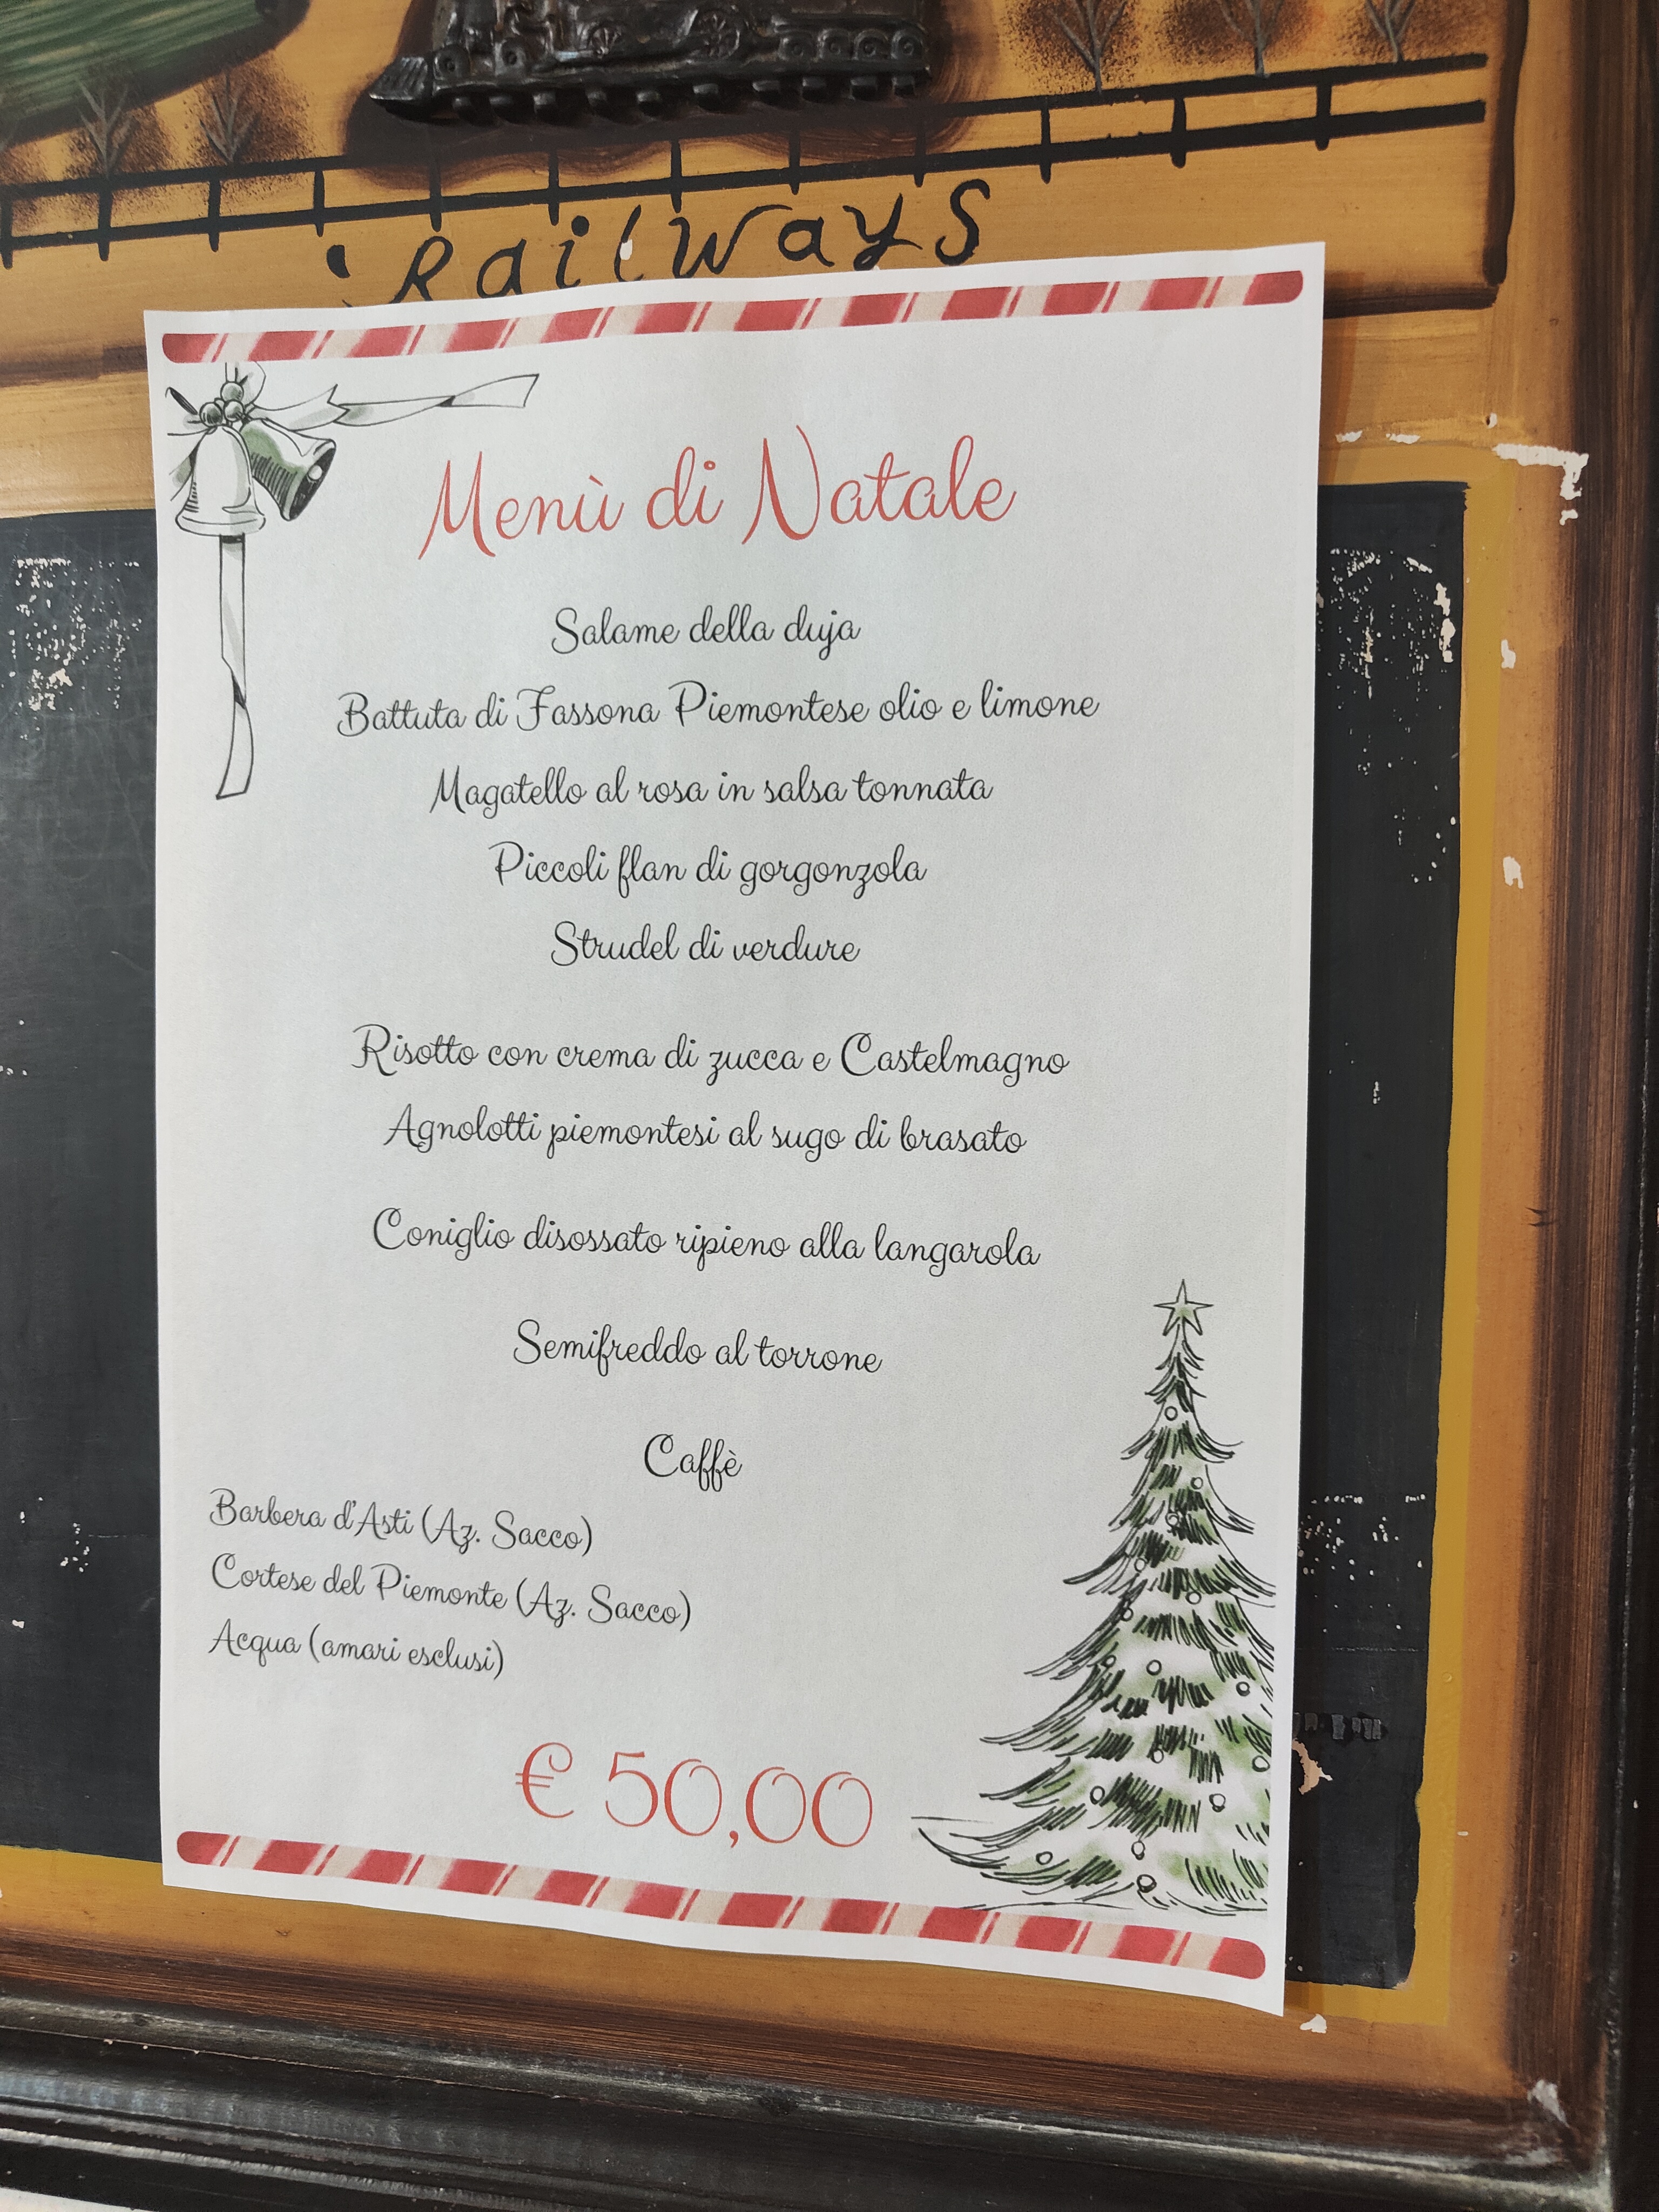 Railways
Menù di Natale
Salame della duja
Battuta di Fassona Piemontese olio e limone
Magatello al rosa in salsa tonnata
Piccoli flan di gorgonzola
Strudel di verdure
Risotto con crema di zucca e Castelmagno
Agnolotti piemontesi al sugo di brasato
Coniglio disossato ripieno alla langarola
Semifreddo al torrone
Caffè
Barbera d'Asti (Az. Sacco)
Cortese del Piemonte (Az. Sacco)
Acqua (amari esclusi)
€ 50,00